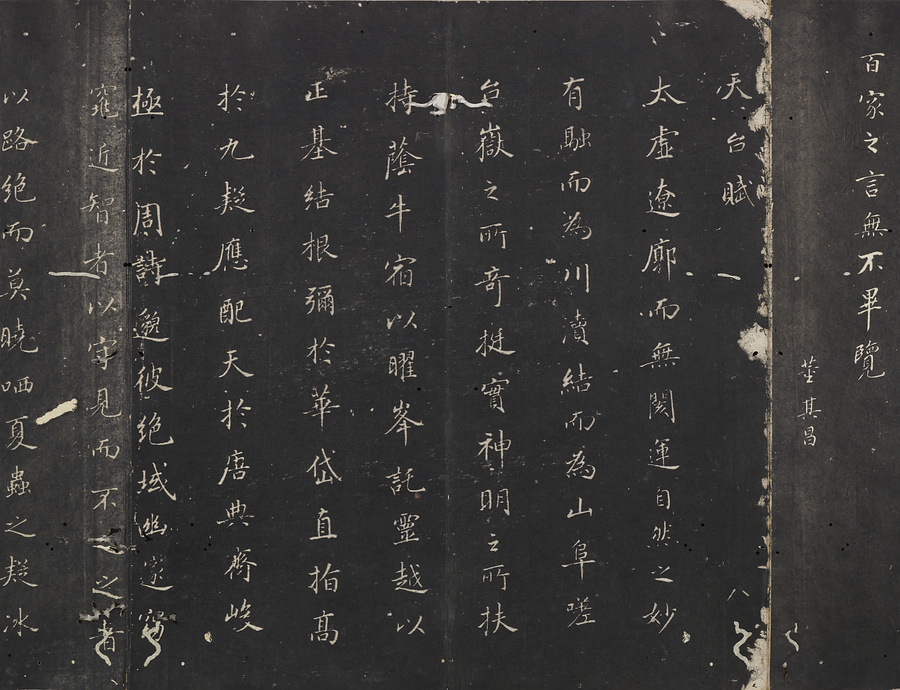 百家之言無不畢覽
董其昌
天台賦
八
太虛遼廓而無閡運自然之妙
有融而為川瀆結而為山阜嗟
台嶽之所奇挺實神明之所扶
持蔭牛宿以曜峯託靈越以
正基結根彌於華岱直指高
於九疑應配天於唐典齊峻
極於周詩邈彼絕域幽邃窈
窕近智者以守見而不之之者
以路絕而莫曉哂夏蟲之疑冰